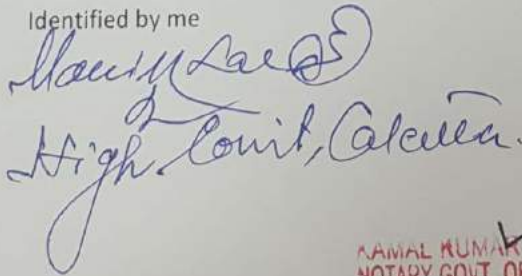 Identified by me
High Court, Calcutta.
KAMAL KUMAR
NOTARY GOVT. OF